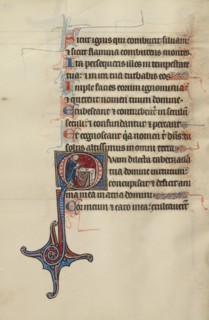 Sicut ignis qui comburit siluam:
et sicut flamma comburens montes
Ita persequeris illos in tempestate
tua: et in ira tua turbabis eos
Imple facies eorum ignominia:
et querent nomen tuum domine.
Erubescant et conturbent in seculum
seculi: et confundantur et pereant.
Et cognoscant quia nomen tibi dominus: tu
solus altissimus in omni terra
Quam dilecta tabernacula
tua domine uirtutum:
concupiscit et deficit ani
ma mea in atria domini
Cor meum et caro mea: exultauerunt